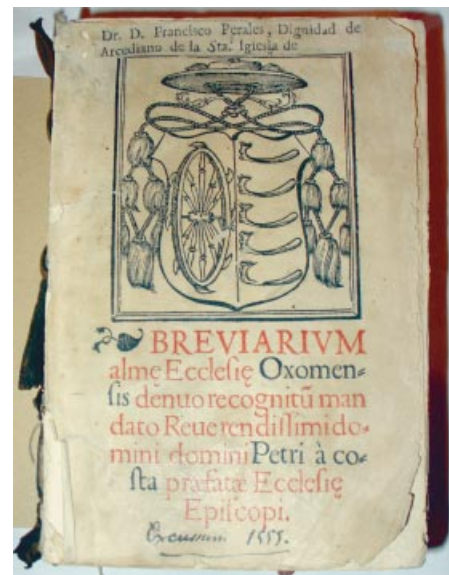 Dr. D. Francisco Perales, Dignidad de
Arcediano de la Sta. Iglesia de
BREVIARIVM
almę Ecclesię Oxomen⸗
sis denuo recognitū man
dato Reuerendissimi do⸗
mini domini Petri à co⸗
sta præfatæ Ecclesię
Episcopi.
1555.